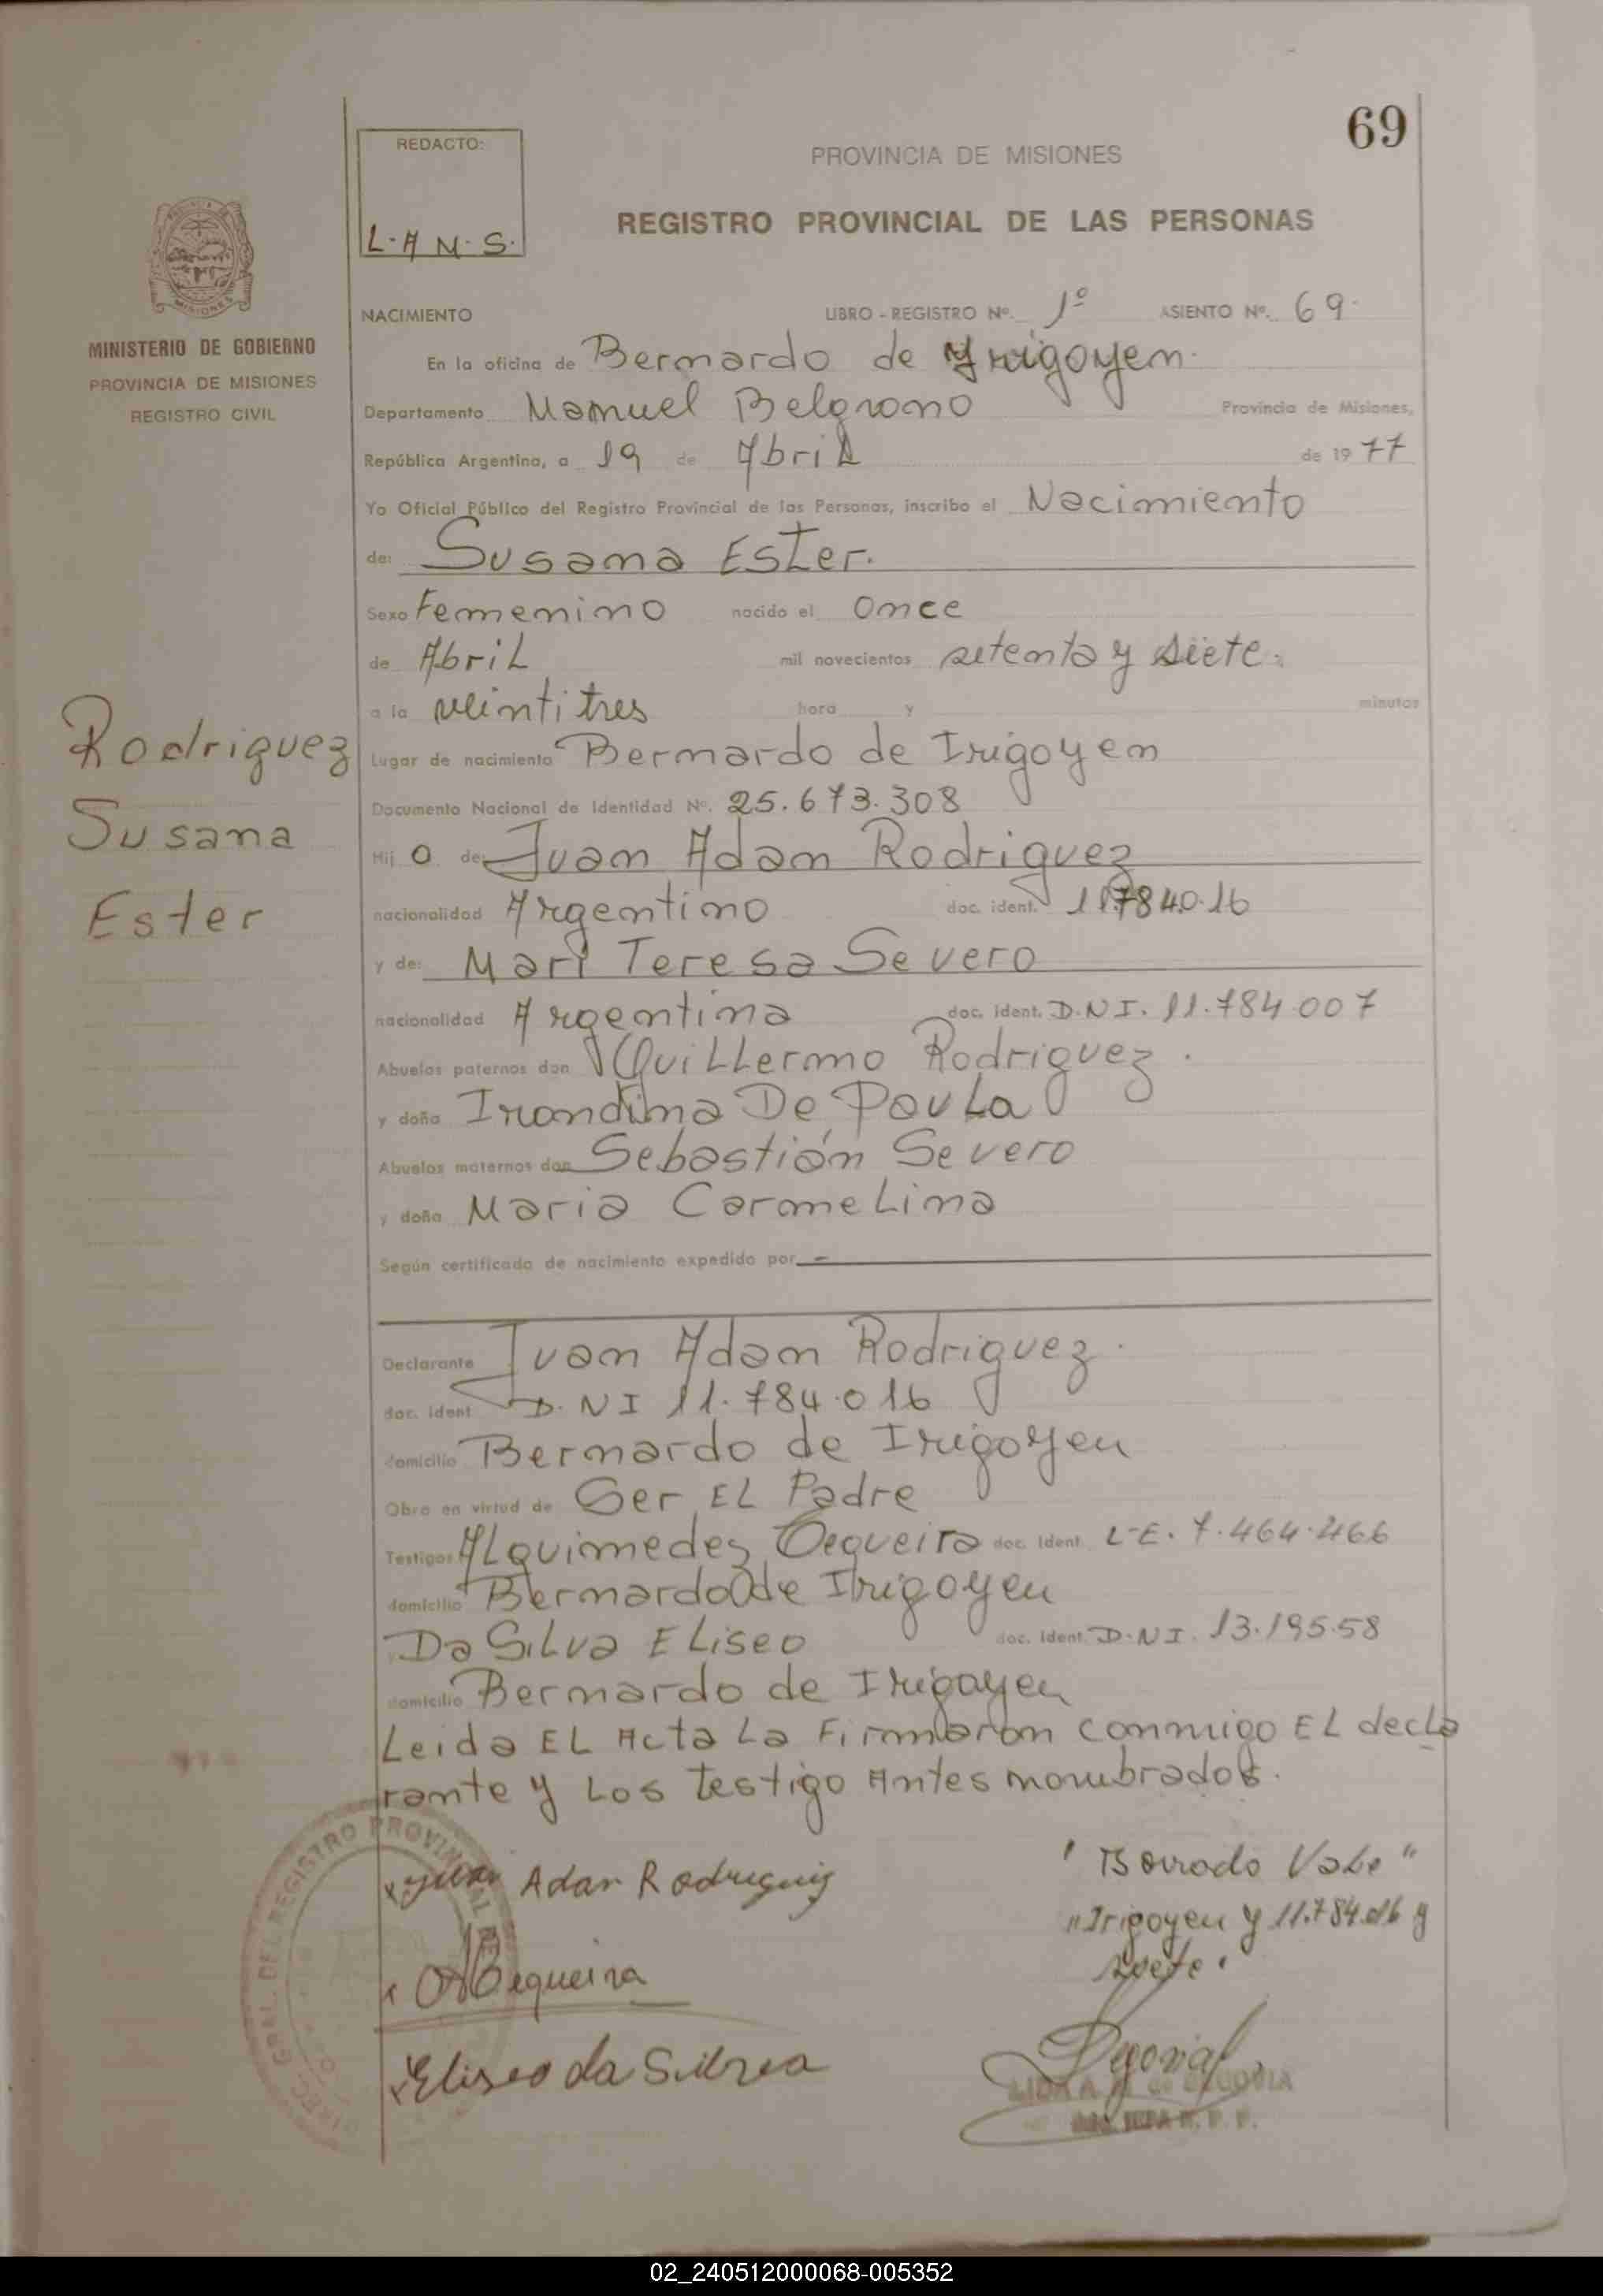 69
REDACTO:
L. A M. S.
PROVINCIA DE MISIONES
REGISTRO PROVINCIAL DE LAS PERSONAS
MINISTERIO DE GOBIERNO
PROVINCIA DE MISIONES
REGISTRO CIVIL
NACIMIENTO LIBRO - REGISTRO Nº. 1º ASIENTO Nº. 69.
En la oficina de Bernardo de Yrigoyen.
Departamento Manuel Belgrano Provincia de Misiones,
República Argentina, a 19 de Abril de 1977
Yo Oficial Público del Registro Provincial de las Personas, inscribo el Nacimiento
de: Susana Ester.
Sexo Femenino nacido el Once
de Abril mil novecientos setenta y siete.
a la veintitres hora y minutos
Rodriguez
Susana
Ester
Lugar de nacimiento Bernardo de Irigoyen
Documento Nacional de Identidad Nº. 25.673.308
Hij o de: Juan Adam Rodriguez
nacionalidad Argentino doc. ident. 11.784.0.16
y de: Mari Teresa Severo
nacionalidad Argentina doc. ident. D.N.I. 11.784.007
Abuelos paternos don Guillermo Rodriguez.
y doña Irondina De Paula
Abuelos maternos don Sebastián Severo
y doña Maria Carmelina
Según certificado de nacimiento expedido por -
Declarante Juan Adam Rodriguez.
doc. ident. D.NI 11.784.016
domicilio Bernardo de Irigoyen
Obra en virtud de Ser EL Padre
Testigos Alquimedes Cequeira doc. ident. L-E. 7.464.466
domicilio Bernardo de Irigoyen
Da Silva Eliseo doc. ident. D.N.I. 13.195.58
domicilio Bernardo de Irigoyen
Leida EL Acta La Firmaron conmigo EL decla
rante y Los testigo Antes mombrados.
x Juan Adan Rodriguiz
" Borrado Vale "
"Irigoyen y 11.784.016 y
x Eliseo da Silvea
DIRECC. GRAL. DEL REGISTRO PROVINCIAL DE
02_240512000068-005352